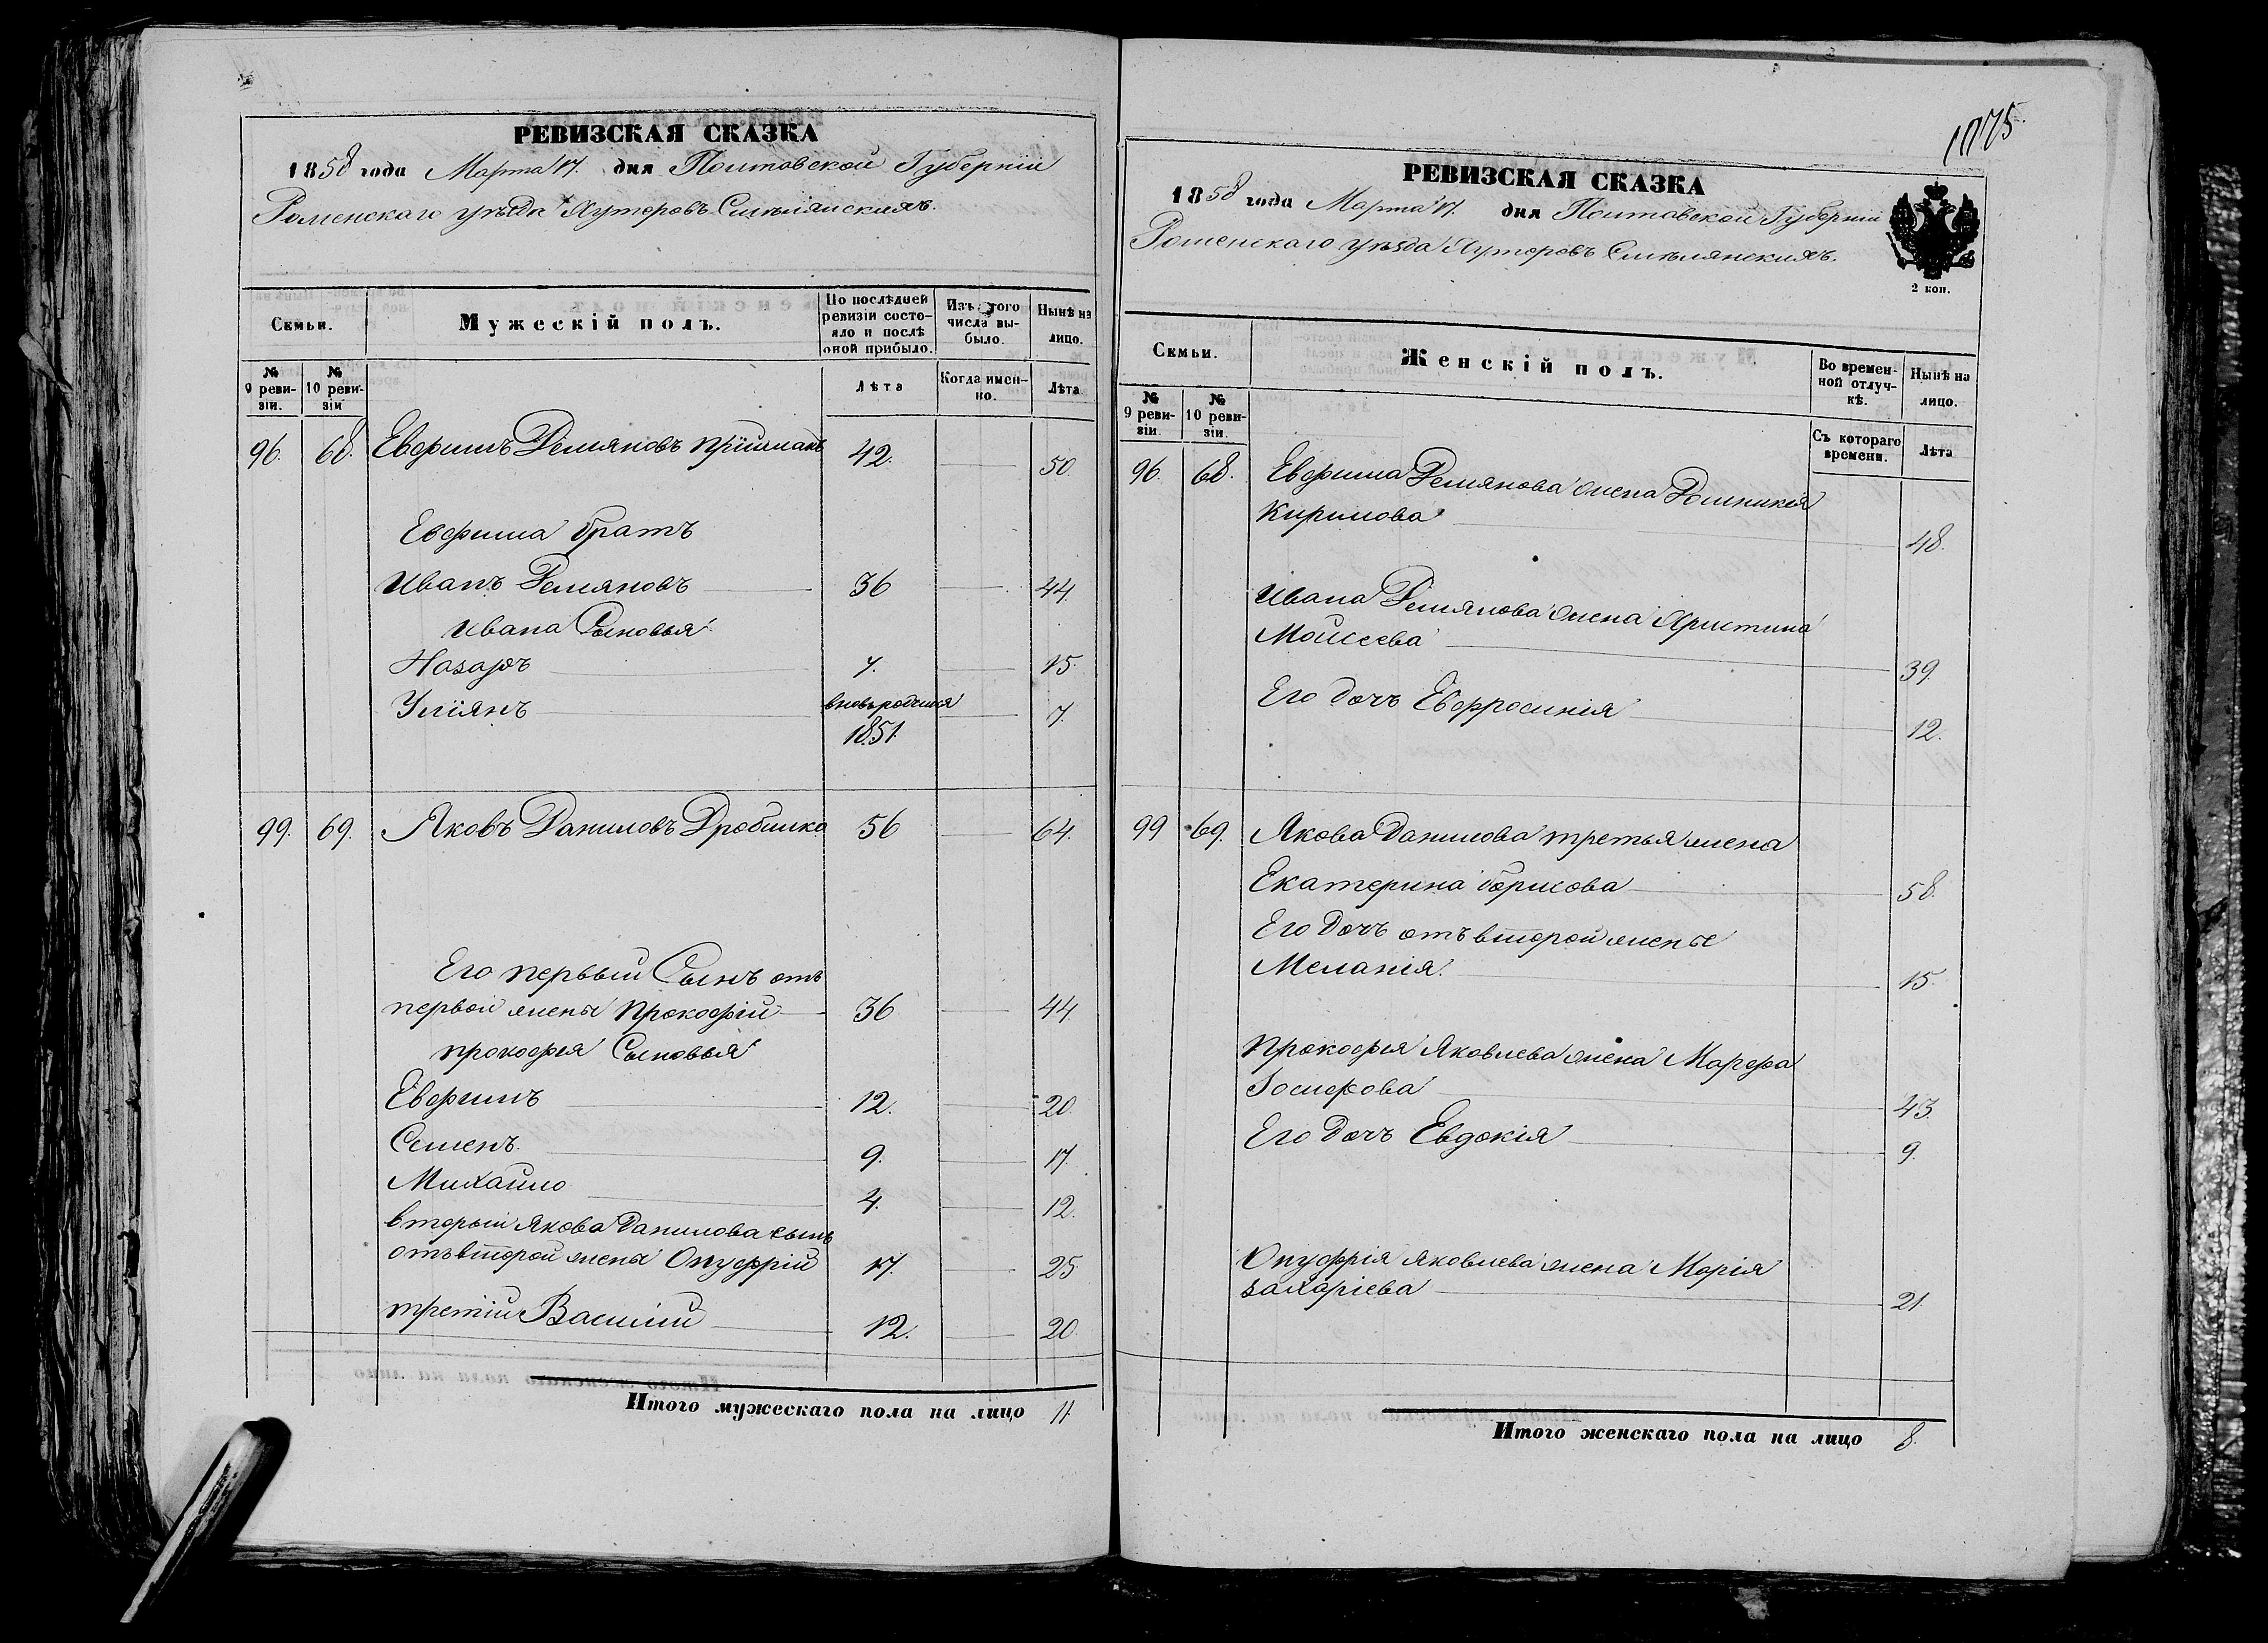 РЕВИЗСКАЯ СКАЗКА
1858 года Марта 17. дня Полтавской Губерніи
Роменскаго уѣзда Хуторовъ Смѣлянскихъ.
Семьи. Мужескій полъ. По послѣдней ревизіи состояло и послѣ оной прибыло. Изъ того числа выбыло. Нынѣ на лицо.
№ 9 ревизіи. № 10 ревизіи Лѣта Когда именно. Лѣта
96. 68. Евфимъ Демяновъ Прійمакъ 42. 50.
Евфима братъ
Иванъ Демяновъ 36 44.
Ивана Сыновья
Назаръ 7. 15.
Уліянъ вновьродился 1851. 7.
99. 69. Яковъ Даниловъ Дробилко 56 64.
Его первый Сынъ отъ
первой жены Прокофій 36 44.
Прокофія Сыновья
Евфимъ 12. 20.
Семенъ. 9. 17.
Михайло 4. 12.
вторый Якова Данилова сынъ
отъ второй жены Онуфрій 17. 25
третій Василій 12. 20.
Итого мужескаго пола на лицо 11.
1075.
РЕВИЗСКАЯ СКАЗКА
1858 года Марта 17. дня Полтавской Губерніи
Роменскаго уѣзда Хуторовъ Смѣлянскихъ.
2 коп.
Семьи. Женскій полъ. Во временной отлучкѣ. Нынѣ на лицо.
№ 9 ревизіи. № 10 ревизіи. Съ котораго времени. Лѣта
96. 68. Евфима Демянова жена Домникія
Кирилова 48.
Ивана Демянова жена Христина
Моисеева 39.
Его дочъ Евфросинія 12.
99 69. Якова Данилова третья жена
Екатерина Борисова 58.
Его дочъ отъ второй жены
Меланія. 15.
Прокофія Яковлева жена Марфа
Іосифова 43.
Его дочъ Евдокія 9.
Онуфрія Яковлева жена Марія
Захаріева 21.
Итого женскаго пола на лицо 8.